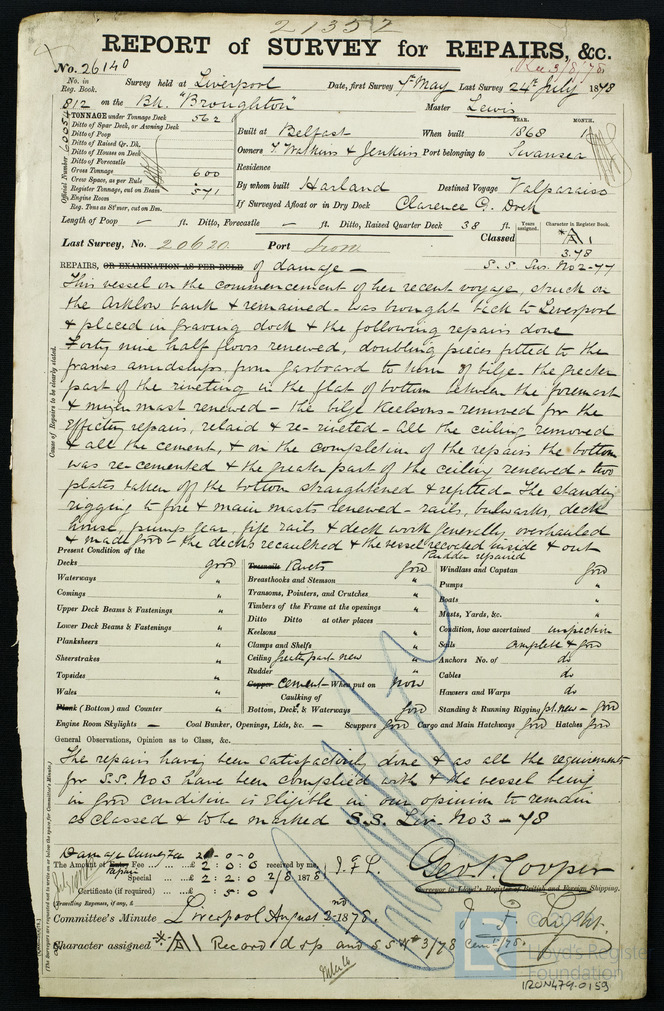 21352
REPORT of SURVEY for REPAIRS, &c.
No. 26140
Rec 3/8/78
No. in Reg. Book.
Survey held at Liverpool Date, first Survey 7th May Last Survey 24th July 1878
812 on the Bk. "Broughton" Master Lewis
Official Number 60054
TONNAGE under Tonnage Deck 562
Ditto of Spar Deck, or Awning Deck
Ditto of Poop
Ditto of Raised Qr. Dk.
Ditto of Houses on Deck
Ditto of Forecastle
Gross Tonnage 600
Crew Space, as per Rule
Register Tonnage, cut on Beam 571
Engine Room
Reg. Tons as St'mer, cut on Bm.
YEAR. MONTH.
Built at Belfast When built 1868 1
Owners T. Watkins & Jenkins Port belonging to Swansea
Residence
By whom built Harland Destined Voyage Valparaiso
If Surveyed Afloat or in Dry Dock Clarence G. Dock
Length of Poop — ft. Ditto, Forecastle — ft. Ditto, Raised Quarter Deck 38 ft.
Years assigned. Character in Register Book.
Last Survey, No. 20620 Port Classed A 1
3.78
REPAIRS, OR EXAMINATION AS PER RULE of damage — S.S. Sus. No 2-77
Cause of Repairs to be clearly stated.
This vessel on the commencement of her recent voyage, struck on
the Arklow bank & remained - was brought back to Liverpool
& placed in graving dock & the following repairs done
Forty nine half floors renewed, doubling pieces fitted to the
frames amidships, from garboard to turn of bilge - the greater
part of the rivetting in the flat of bottom between the foremast
& mizen mast renewed - the bilge keelsons - removed for the
effecting repairs, relaid & re-riveted - All the ceiling removed
& all the cement, & on the completion of the repairs the bottom
was re-cemented & the greater part of the ceiling renewed - two
plates taken off the bottom straightened & refitted - The standing
rigging to fore & main masts renewed - rails, bulwarks, deck
house, pump gear, fife rails & deck work generally overhauled
& made good - the decks recaulked & the vessel recoated inside & out
Rudder repaired
Present Condition of the
Decks good
Waterways "
Comings "
Upper Deck Beams & Fastenings "
Lower Deck Beams & Fastenings "
Planksheers "
Sheerstrakes "
Topsides "
Wales "
Plank (Bottom) and Counter "
Treenails Rivets good
Breasthooks and Stemson "
Transoms, Pointers, and Crutches "
Timbers of the Frame at the openings "
Ditto Ditto at other places "
Keelsons "
Clamps and Shelfs "
Ceiling greater part new "
Rudder "
Copper Cement — When put on now
Caulking of
Bottom, Deck, & Waterways good
Windlass and Capstan good
Pumps "
Boats "
Masts, Yards, &c. "
Condition, how ascertained inspection
Sails complete & good
Anchors No. of do
Cables do
Hawsers and Warps do
Standing & Running Rigging pt. new — good
Engine Room Skylights — Coal Bunker, Openings, Lids, &c. — Scuppers good Cargo and Main Hatchways good Hatches good
General Observations, Opinion as to Class, &c.
The repairs have been satisfactorily done & as all the requirements
for S.S. No 3 have been complied with & the vessel being
in good condition is Eligible in our opinion to remain
as classed & to be marked S.S. Liv. No 3 - 78
Damage Survey Fee 2 - 0 - 0
The Amount of Entry Fee ... £ 2 : 0 : 0 received by me,
Repair
Special ... £ 2 : 2 : 0 2/8 1878 J.F.L.
Certificate (if required) ... £ : 5 : 0
(Travelling Expenses, if any, £ )
Geo. N. Cooper
Surveyor to Lloyd's Register of British and Foreign Shipping.
J. F. Light.
Committee's Minute Liverpool August 2nd 1878.
Character assigned A 1 Record d rp and S S No 3/78
Lloyd's Register
Foundation
IRON479-0159